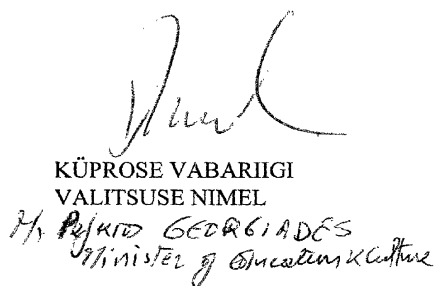 KÜPROSE VABARIIGI
VALITSUSE NIMEL
Mr GEORGIADES
Minister of Education & Culture